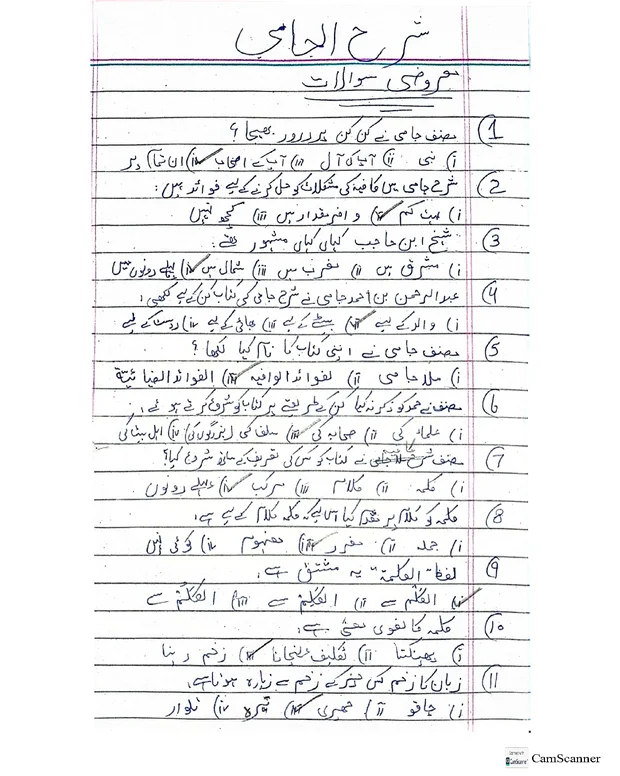 شرح الجامی
معروضی سوالات
1) مصنف جامی نے کن کن پر درود بھیجا؟
i) نبی ii) آپ کی آل iii) آپ کے اصحاب iv) ان تمام پر
2) شرح جامی میں کافیہ کی مشکلات کو حل کرنے کے لیے فوائد ہیں:
i) بہت کم ii) وافر مقدار میں iii) کچھ نہیں
3) شیخ ابن حاجب کہاں کہاں مشہور تھے:
i) مشرق میں ii) مغرب میں iii) شمال میں iv) پہلے دونوں میں
4) عبدالرحمن بن احمد جامی نے شرح جامی کی کتاب کن کے لیے لکھی:
i) والد کے لیے ii) بیٹے کے لیے iii) بھائی کے لیے iv) دوست کے لیے
5) مصنف جامی نے اپنی کتاب کا نام کیا لکھا؟
i) ملا جامی ii) فوائد الوافیہ iii) الفوائد الضیائیۃ
6) مصنف نے حمد کو ذکر نہ کیا کن کے طریقے پر کتاب کو شروع کرتے ہوئے:
i) علماء کی ii) صحابہ کی iii) سلف کی (بزرگوں کی) iv) اہل بیت کی
7) مصنف نے کتاب کو کس کی تعریف کے ساتھ شروع کیا؟
i) کلمہ ii) کلام iii) مرکب iv) پہلے دونوں
8) کلمہ کو کلام پر مقدم کیا اس لیے کہ کلمہ کلام کے لیے ہے:
i) جملہ ii) مفرد iii) مفہوم iv) کوئی نہیں
9) لفظ "الکلمۃ" یہ مشتق ہے:
i) الکلم سے ii) الکلم سے iii) الکلم سے
10) کلمہ کا لغوی معنی ہے:
i) پھینکنا ii) تکلیف پہنچانا iii) زخم دینا
11) زبان کا زخم کس چیز کے زخم سے زیادہ ہوتا ہے:
i) چاقو ii) چھری iii) نیزہ iv) تلوار
CamScanner